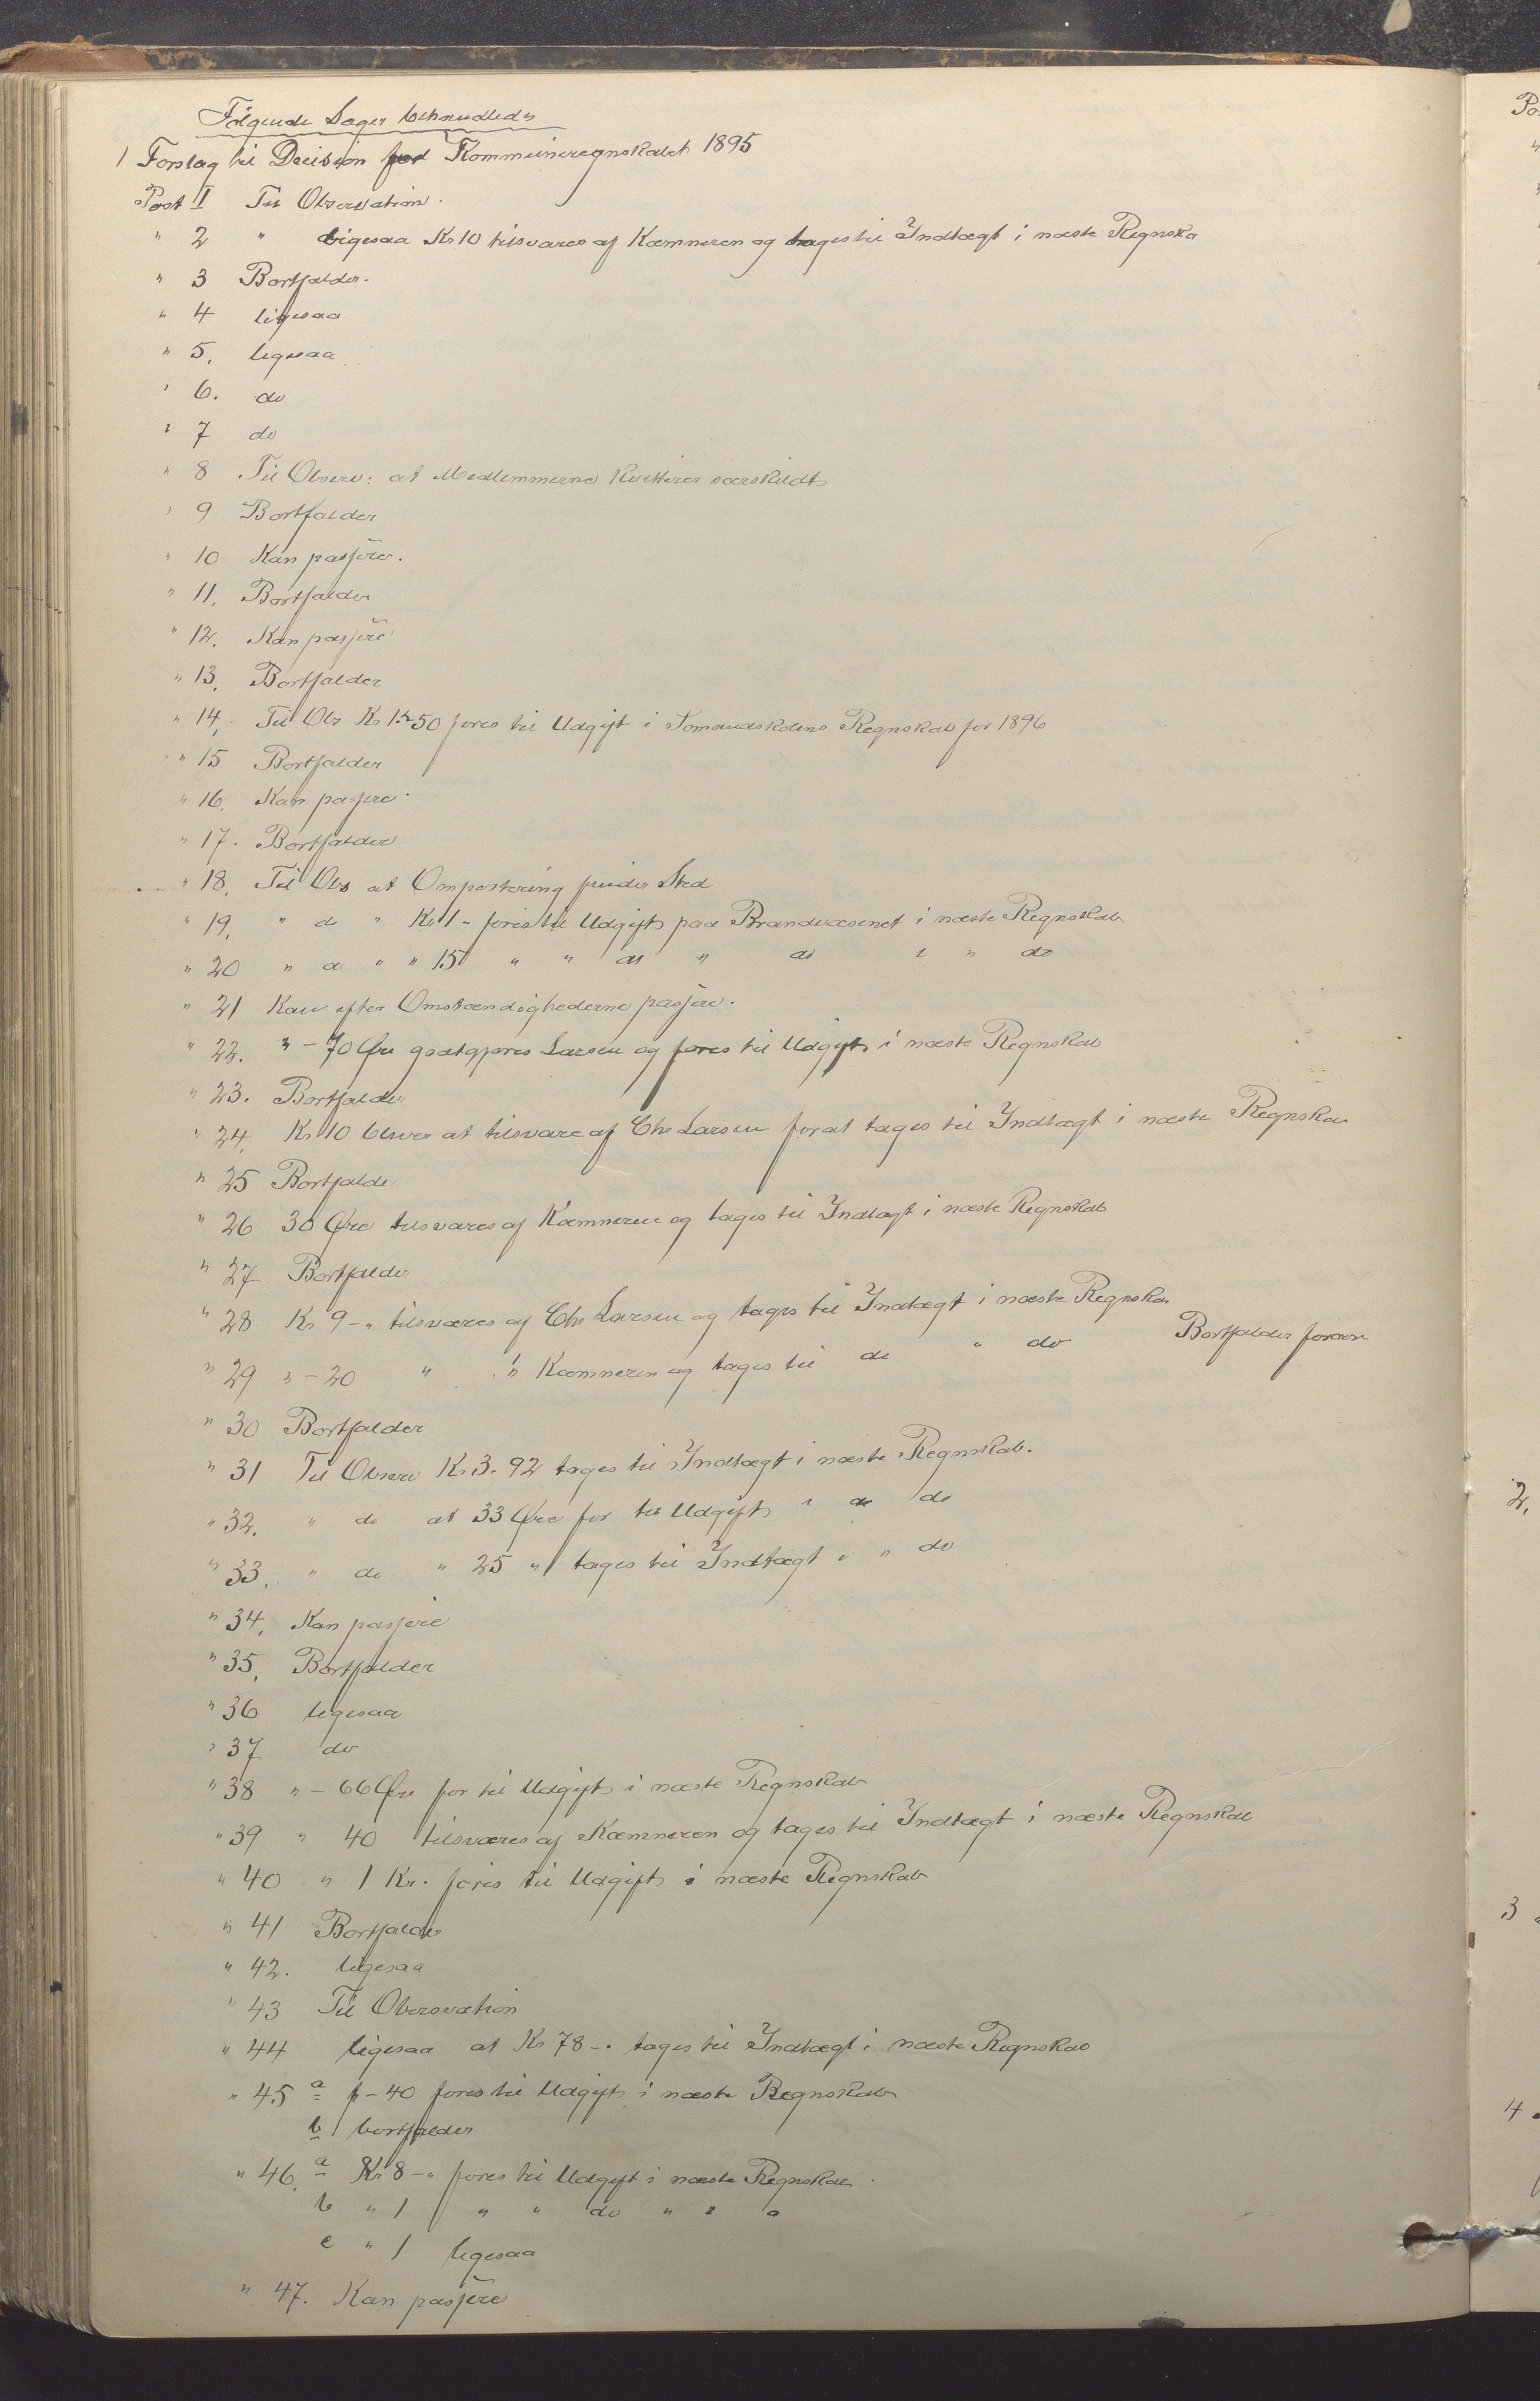 Følgende Sager behandledes
1 Forslag til Decision for Kommuneregnskabet 1895
Post I Til Observation.
" 2 " Ligesaa Kr 10 tilsvares af Kæmneren og tages til Indtægt i næste Regnska
" 3 Bortfalder.
" 4 ligesaa
" 5. ligesaa
" 6. do
" 7 do
" 8 Til Observ: at Medlemmerne Kvitterer særskildt
" 9 Bortfalder
" 10 Kan pasjere.
" 11. Bortfalder
" 12. Kan pasjere
" 13. Bortfalder
" 14. Til Obs Kr 50 føres til Udgift i Sømandskolens Regnskab for 1896
" 15 Bortfalder
" 16. Kan pasjere.
" 17. Bortfalder
" 18. Til Obs at Ompostering finder Sted
" 19. " do " Kr 1 - føres til Udgift paa Brandvæsenet i næste Regnskab
" 20 " do " " 15 " " do " do i " do
" 21 Kan efter Omstændighederne pasjere.
" 22. " - 70 Øre godtgjøres Larsen og føres til Udgift i næste Regnskab
" 23. Bortfalder
" 24. Kr 10 bliver at tilsvare af Chr Larsen forat tages til Indtægt i næste Regnskab
" 25 Bortfalder
" 26 30 Øre tilsvares af Kæmneren og tages til Indtægt i næste Regnskab
" 27 Bortfalder
" 28 Kr 9 - " tilsvares af Chr Larsen og tages til Indtægt i næste Regnskab
" 29 " - 20 " " Kæmneren og tages til do " do Bortfalder
" 30 Bortfalder
" 31 Til Observ Kr 3.92 tages til Indtægt i næste Regnskab.
" 32. " do at 33 Øre før til Udgift i do do
" 33. " do " 25 " tages til Indtægt i " do
" 34. Kan pasjere
" 35. Bortfalder
" 36 ligesaa
" 37 do
" 38 " - 66 Øre før til Udgift i næste Regnskab
" 39 " 40 tilsvares af Kæmneren og tages til Indtægt i næste Regnskab
" 40 " 1 Kr. føres til Udgift i næste Regnskab
" 41 Bortfalder
" 42. ligesaa
" 43 Til Observation
" 44 ligesaa at Kr 78 -. tages til Indtægt i næste Regnskab
" 45 a - 40 føres til Udgift i næste Regnskab
b bortfalder
" 46. a Kr 8 - " føres til Udgift i næste Regnskab
b " 1 " " do " "
c " 1 ligesaa
" 47. Kan pasjere
2.
3
4.